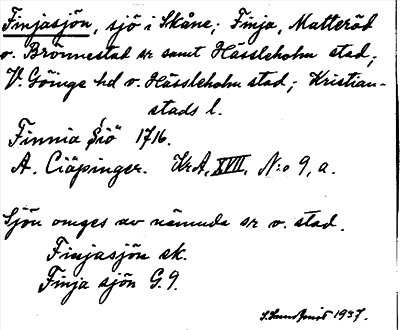 Finjasjön, sjö i Skåne; Finja, Matteröd
o. Brönnestad sr samt Hässleholm stad;
V. Göinge hd o. Hässleholm stad; Kristian-
stads l.
Finnia Siö 1716.
A. Ciäpinger. KrA, XVII, N:o 9, a.
Sjön omges av nämnda sr o. stad.
Finjasjön ek.
Finja sjön G.9.
1937.